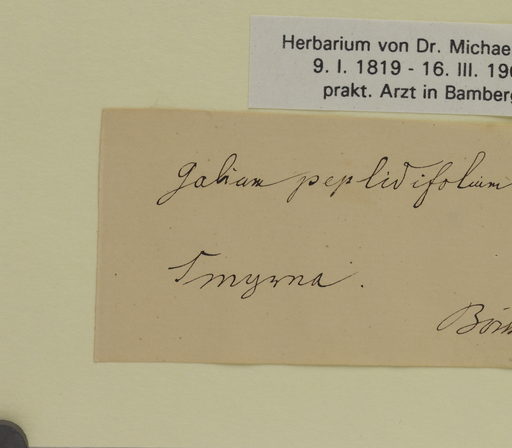 Herbarium von Dr. Michae
9. I. 1819 - 16. III. 19
prakt. Arzt in Bamberg
Galium peplidifolium
Smyrna.
Bois